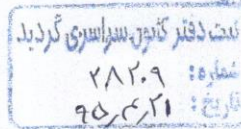 ثبت دفتر کانون سراسری گردید
شماره: ۲۸۲۰۹
تاریخ: ۹۵٫۴٫۲۱